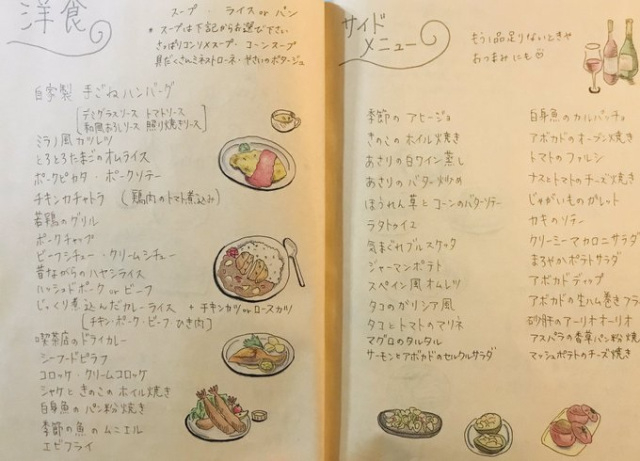 洋食
スープ ・ ライス or パン
* スープは下記からお選び下さい
さっぱりコンソメスープ・コーンスープ
具だくさんミネストローネ・やさいのポタージュ
自家製 手ごねハンバーグ
デミグラスソース トマトソース
和風おろしソース 照り焼きソース
ミラノ風カツレツ
とろとろたまごのオムライス
ポークピカタ・ポークソテー
チキンカチャトラ (鶏肉のトマト煮込み)
若鶏のグリル
ポークチャップ
ビーフシチュー・クリームシチュー
昔ながらのハヤシライス
ハッシュドポーク or ビーフ
じっくり煮込んだカレーライス + チキンカツ or ロースカツ
[チキン・ポーク・ビーフ・ひき肉]
喫茶店のドライカレー
シーフードピラフ
コロッケ・クリームコロッケ
シャケときのこのホイル焼き
白身魚のパン粉焼き
季節の魚のムニエル
エビフライ
サイドメニュー
もう1品足りないときや
おつまみにも
季節のアヒージョ
きのこのホイル焼き
あさりの白ワイン蒸し
あさりのバター炒め
ほうれん草とコーンのバターソテー
ラタトゥイユ
気まぐれブルスケッタ
ジャーマンポテト
スペイン風オムレツ
タコのガリシア風
タコとトマトのマリネ
マグロのタルタル
サーモンとアボカドのセルクルサラダ
白身魚のカルパッチョ
アボカドのオーブン焼き
トマトのファルシ
ナスとトマトのチーズ焼き
じゃがいものガレット
カキのソテー
クリーミーマカロニサラダ
まろやかポテトサラダ
アボカドディップ
アボカドの生ハム巻きフラ
砂肝のアーリオオーリオ
アスパラの香草パン粉焼
マッシュポテトのチーズ焼き